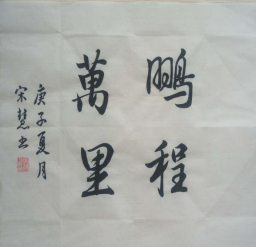 鵬程
萬里
庚子夏月
宋慧书